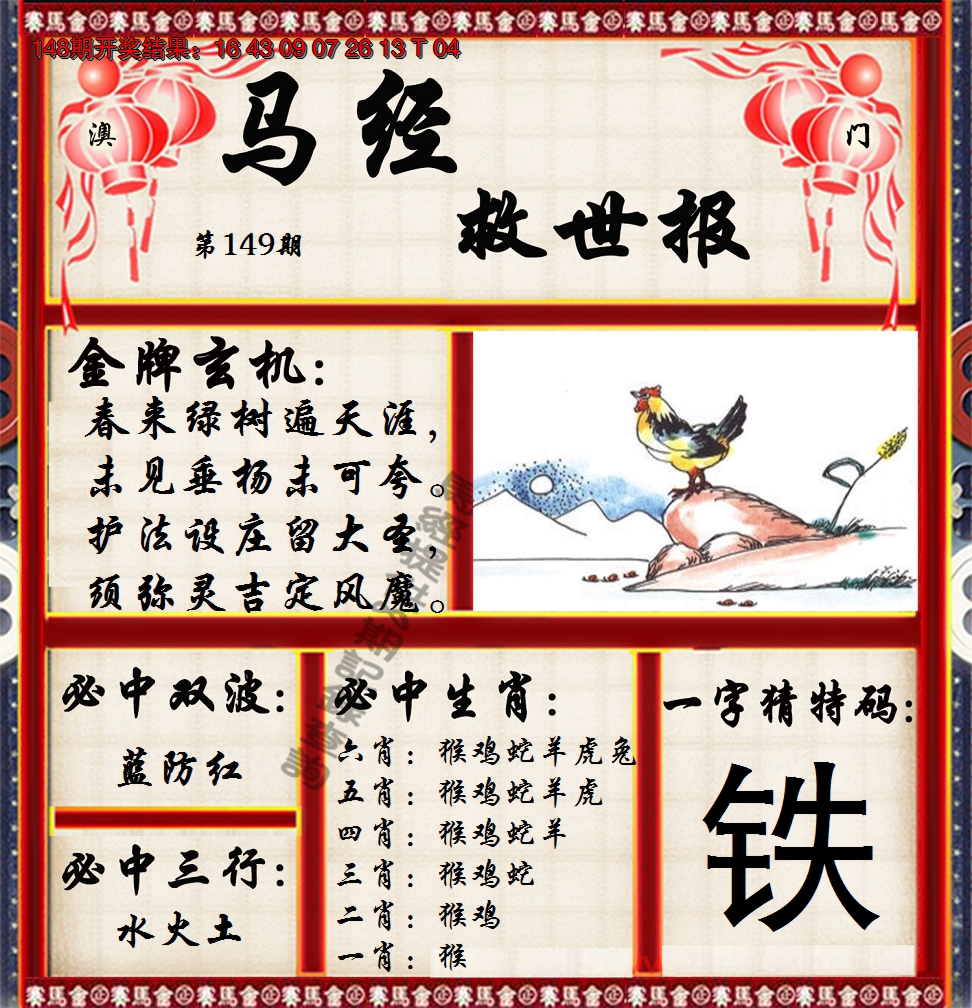 148期开奖结果：16 43 09 07 26 13 T 04
澳
门
马经
救世报
第149期
金牌玄机：
春来绿树遍天涯，
未见垂杨未可夸。
护法设庄留大圣，
须弥灵吉定风魔。
必中双波：
蓝防红
必中三行：
水火土
必中生肖：
六肖：猴鸡蛇羊虎兔
五肖：猴鸡蛇羊虎
四肖：猴鸡蛇羊
三肖：猴鸡蛇
二肖：猴鸡
一肖：猴
一字猜特码：
铁